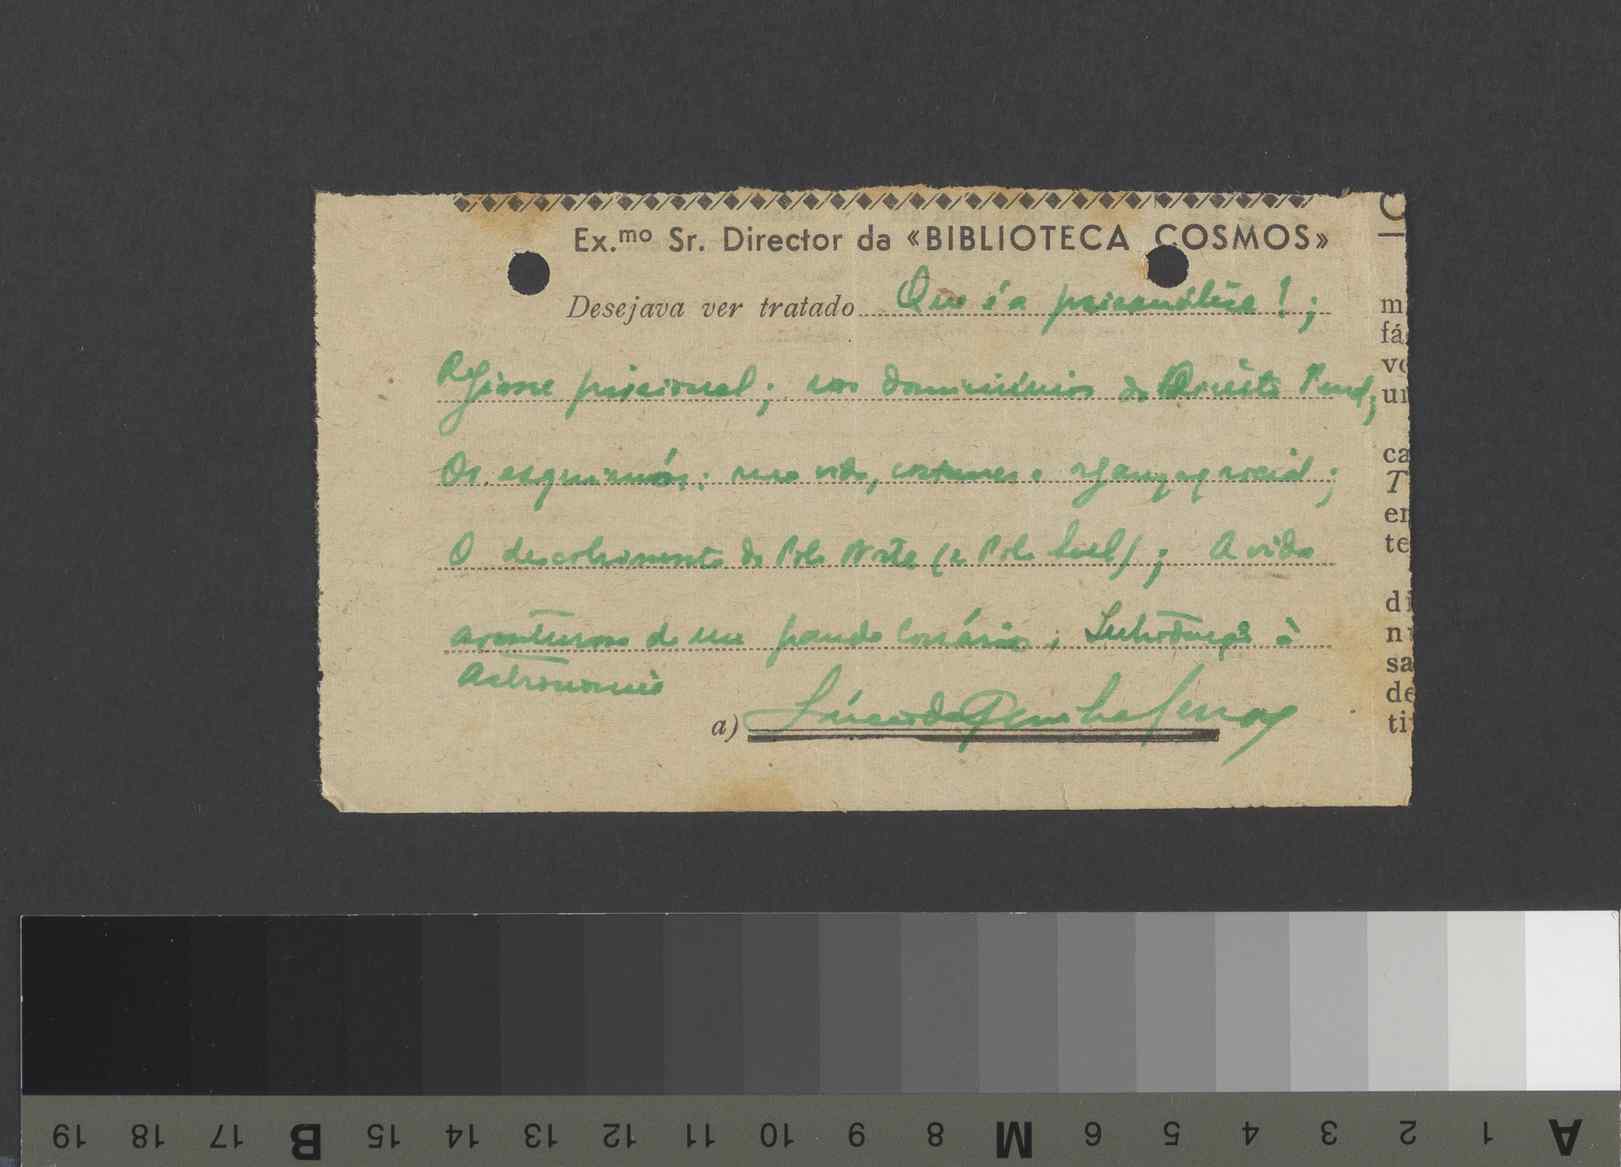 Ex.mo Sr. Director da «BIBLIOTECA COSMOS»
Desejava ver tratado Que é a psicanálise!;
Regime prisional; nos domínios do Direito Penal;
Os esquimós: sua vida, costumes e social;
O descobrimento do Polo Norte (e Polo Sul); A vida
aventurosa de um grande Corsário; Introdução à
Astronomia
a) da Serra
C
m
fá
vo
un
ca
T
en
te
di
nu
sa
de
tit
19 18 17 B 15 14 13 12 11 10 9 8 M 6 5 4 3 2 1 A